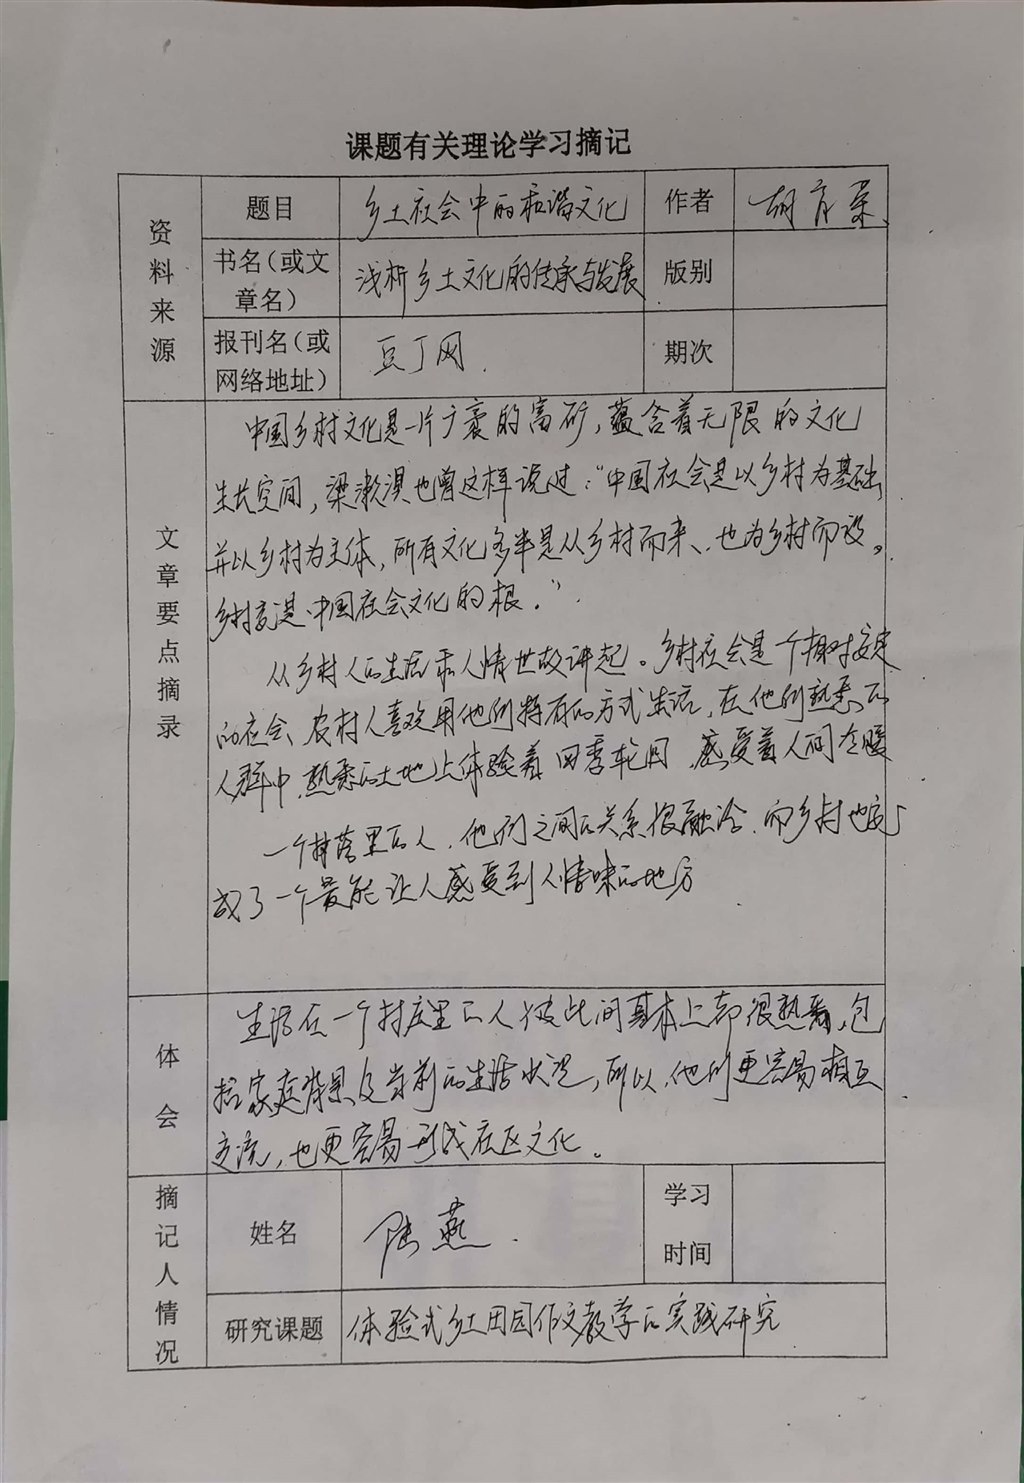 课题有关理论学习摘记
资料来源
题目 乡土社会中的和谐文化 作者 胡彦荣
书名(或文章名) 浅析乡土文化的传承与发展 版别
报刊名(或网络地址) 豆丁网. 期次
文章要点摘录
中国乡村文化是一片广袤的富矿,蕴含着无限的文化
生长空间,梁漱溟也曾这样说过:“中国社会是以乡村为基础,
并以乡村为主体,所有文化多半是从乡村而来、也为乡村而设。
乡村是中国社会文化的根.”
从乡村人的生活和人情世故讲起。乡村社会是个相对安定
的社会、农村人喜欢用他们特有的方式生活,在他们熟悉的
人群中.熟悉的土地上体验着四季轮回.感受着人间冷暖
一个村落里的人.他们之间的关系很融洽.而乡村也
成了一个最能让人感受到人情味的地方
体会
生活在一个村庄里的人彼此间基本上都很熟悉,包
括家庭背景及当前的生活状况,所以,他们更容易相互
交流,也更容易形成社区文化。
摘记人情况
姓名 陆燕. 学习时间
研究课题 体验式乡土田园作文教学的实践研究